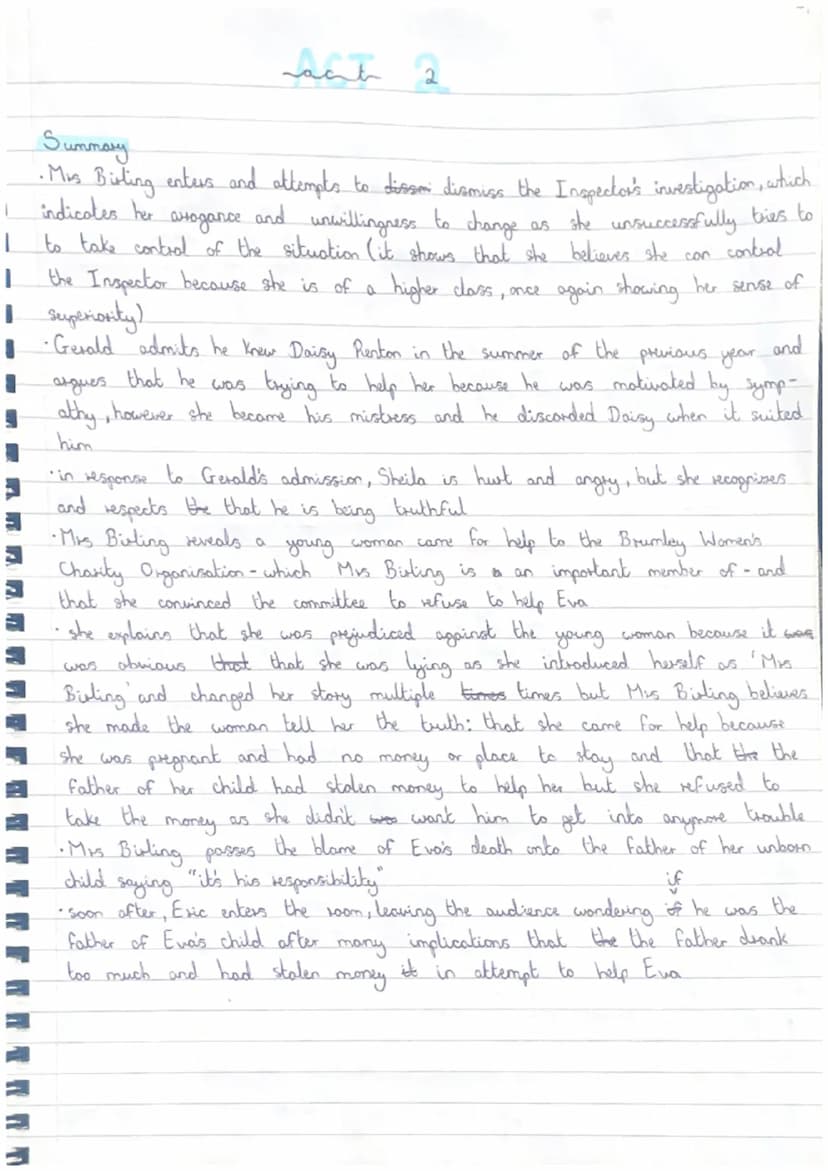 ACT 2
act 2
Summary
· Mrs Birling enters and attempts to dismiss the Inspector's investigation, which
indicates her arrogance and unwillingness to change as she unsuccessfully tries to
to take control of the situation (it shows that she believes she can control
the Inspector because she is of a higher class, once again showing her sense of
superiority)
· Gerald admits he knew Daisy Renton in the summer of the previous year and
argues that he was trying to help her because he was motivated by symp-
athy, however she became his mistress and he discarded Daisy when it suited
him
· in response to Gerald's admission, Sheila is hurt and angry, but she recognises
and respects the that he is being truthful
· Mrs Birling reveals a young woman came for help to the Brumley Women's
Charity Organisation - which Mrs Birling is a an important member of - and
that she convinced the committee to refuse to help Eva
· she explains that she was prejudiced against the young woman because it was
was obvious that that she was lying as she introduced herself as 'Mrs
Birling' and changed her story multiple times times but Mrs Birling believes
she made the woman tell her the truth: that she came for help because
she was pregnant and had no money or place to stay and that the the
father of her child had stolen money to help her but she refused to
take the money as she didn't want him to get into anymore trouble
· Mrs Birling passes the blame of Eva's death onto the father of her unborn
child saying "it's his responsibility"
· soon after, Eric enters the room, leaving the audience wondering if he was the
father of Eva's child after many implications that the the father drank
too much and had stolen money it in attempt to help Eva